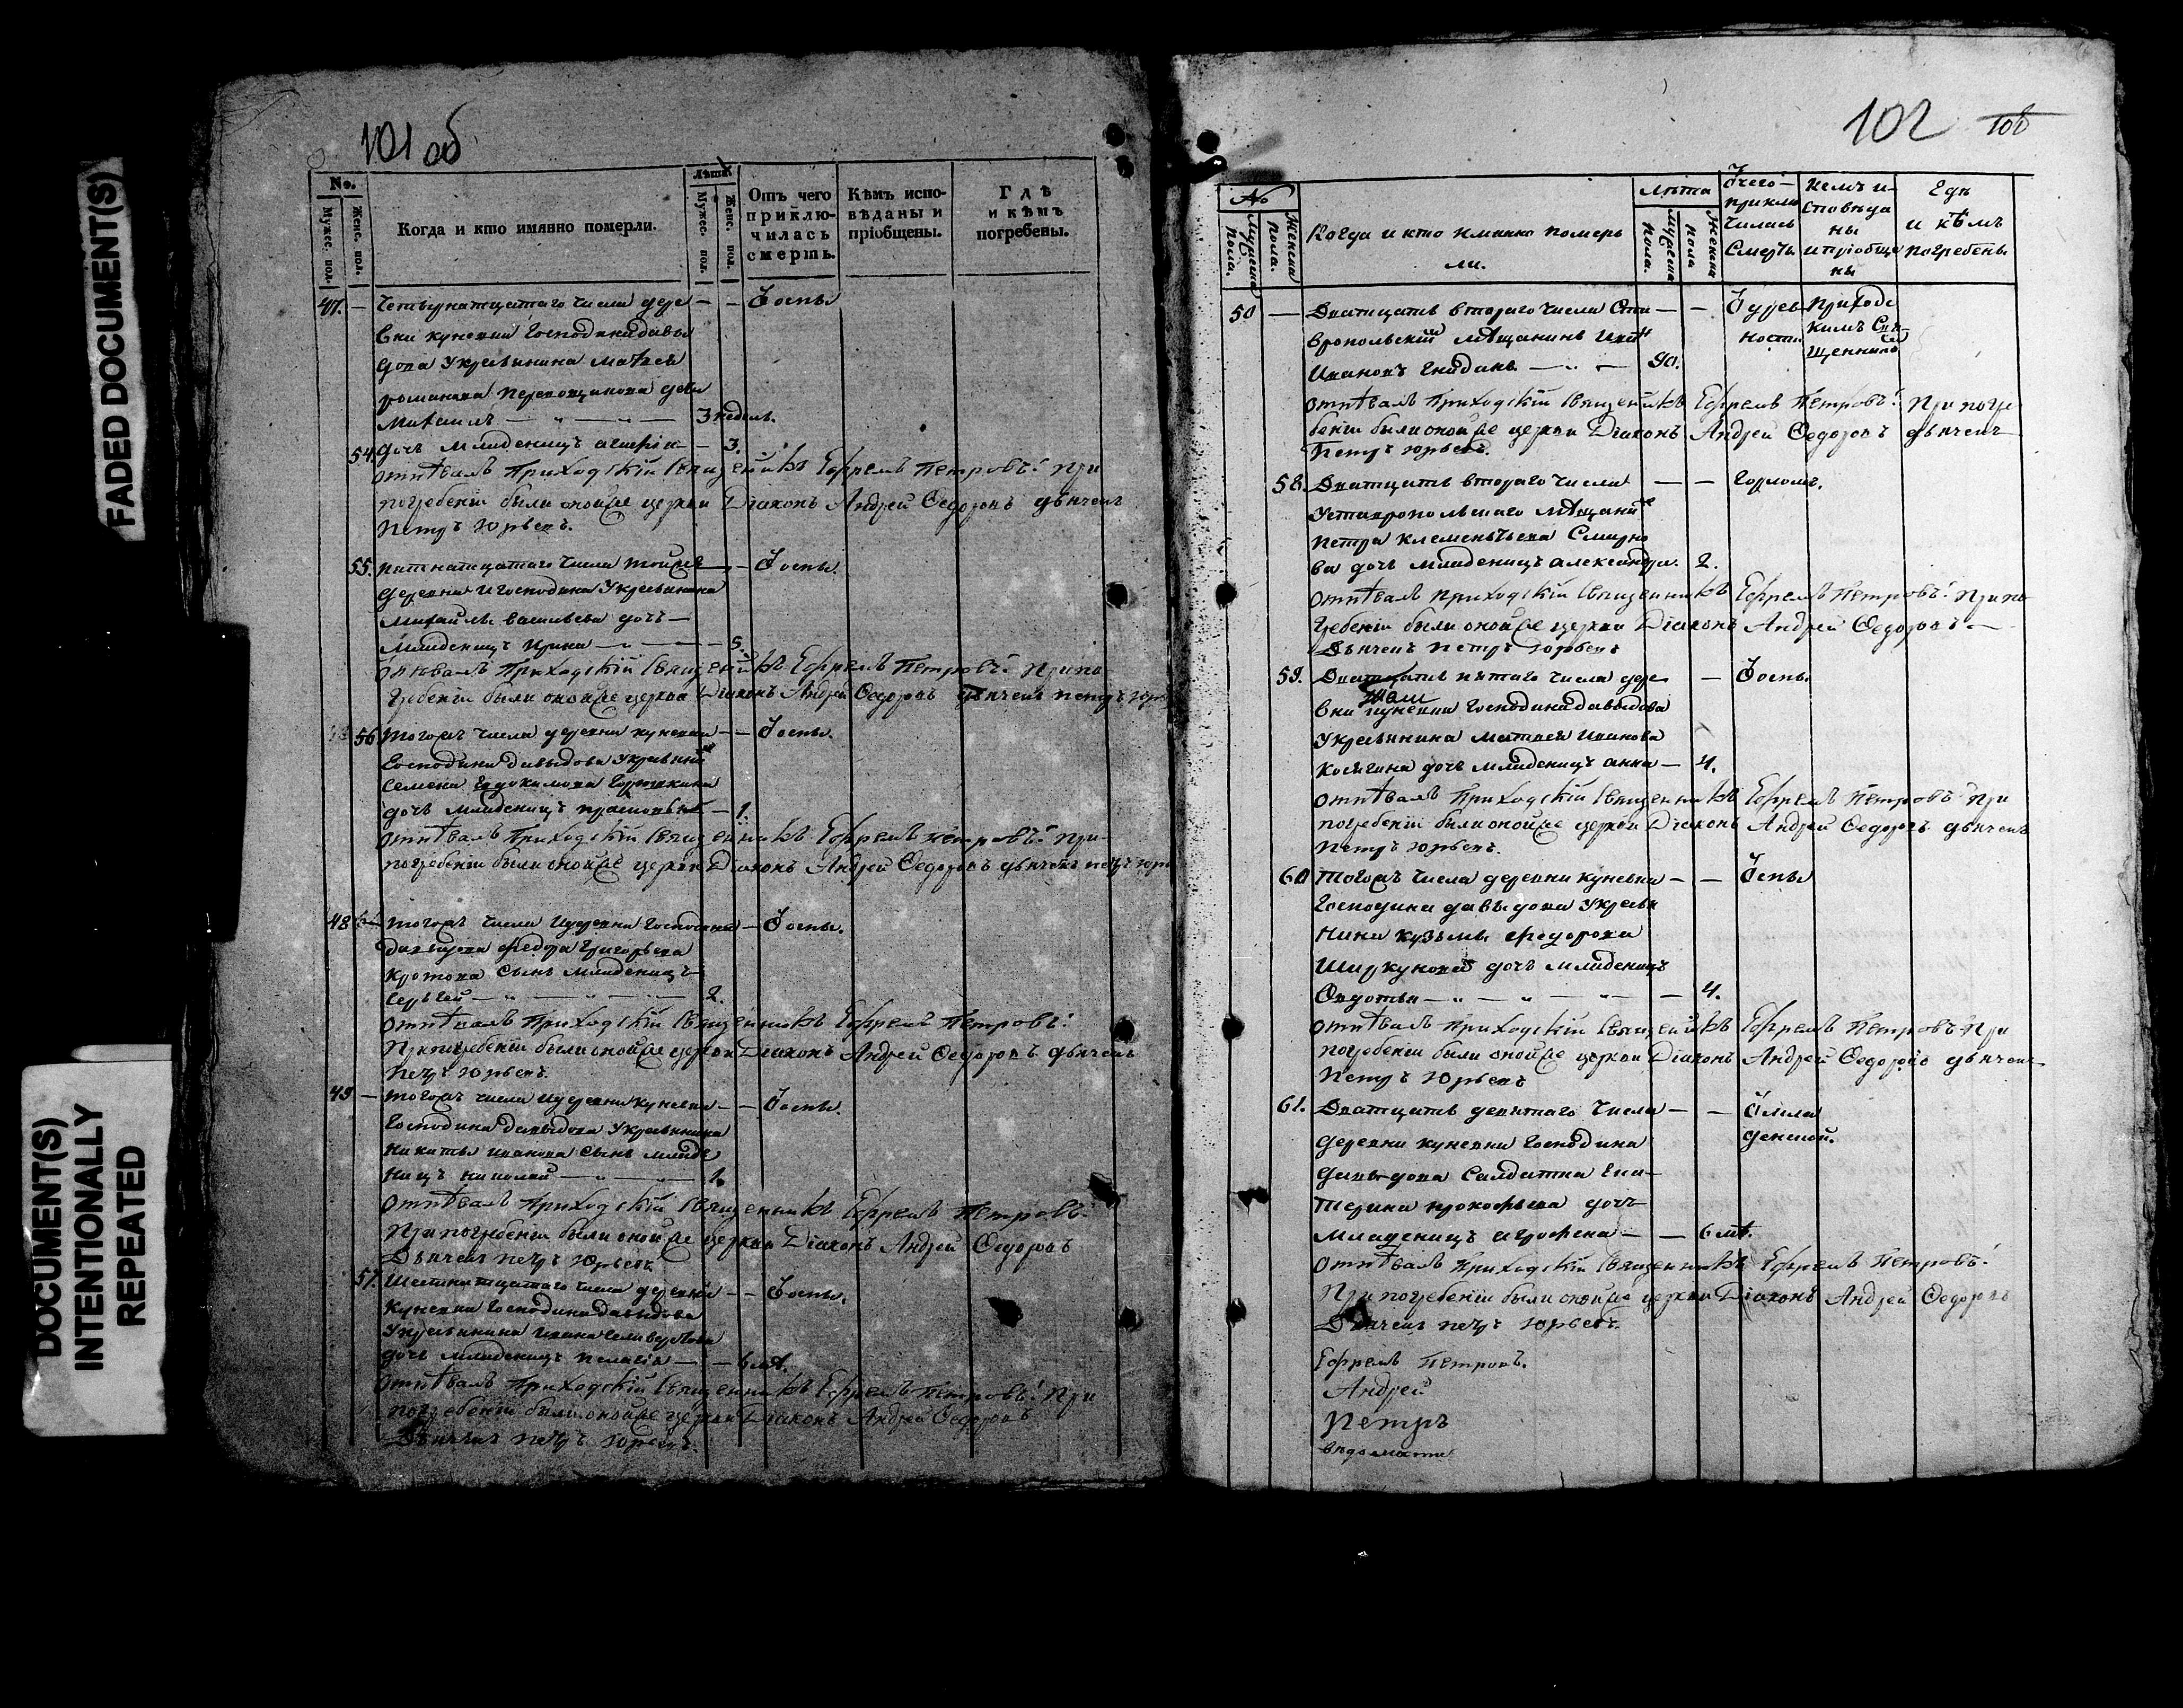 FADED DOCUMENT(S)
DOCUMENT(S)
INTENTIONALLY
REPEATED
101 об
No.
Мужес. пол.
Женс. пол.
Когда и кто имянно померли.
Лѣта.
Мужес. пол.
Женс. пол.
Отъ чего
приклю-
чилась
смерть.
Кѣмъ испо-
вѣданы и
пріобщены.
Гдѣ
и кѣмъ
погребены.
47. — Четырнатцатаго числа дере — — Ѿ оспы
вни куневки Господина давы
дова Укрестьянина Матвея
романова девы
Михаилъ — — 3 недель.
54. дочь младенецъ — 3.
отпѣвалъ Приходскій Священникъ Ефремъ Петровъ: При
погребеніи были оной же церкви Діаконъ Андрей Ѳедоровъ дьячекъ
Петръ Юрьевъ.
55. пятнатцатаго числа тойже — — Ѿ оспы.
деревни и Господина Укрестьянина
Михайлы васильева дочь —
Младенецъ Ирина — 5.
отпѣвалъ Приходскій Священникъ Ефремъ Петровъ: При по
гребеніи были оной же церкви Діаконъ Андрей Ѳедоровъ дьячекъ петръ юрь
56 Тогожъ числа деревни куневки — — Ѿ оспы.
Господина давыдова Укрестьяни
Семена Евдокимова
дочь младенецъ — 1.
отпѣвалъ Приходскій Священникъ Ефремъ Петровъ: При-
погребеніи были оной же церкви Діаконъ Андрей Ѳедоровъ дьячекъ петръ юрь
48 — Тогожъ числа Идеревни Господина — Ѿ оспы.
давыдова Ѳедора Григорьева
Кротова Сынъ Младенецъ
Сергей — 2.
отпѣвалъ Приходскій Священникъ Ефремъ Петровъ:
При погребеніи были оной же церкви Діаконъ Андрей Ѳедоровъ дьячекъ
Петръ Юрьевъ.
49 — Тогожъ числа Идеревни куневки — — Ѿ оспы.
Господина давыдова Укрестьянина
Никиты иванова Сынъ младе
нецъ николай — 1.
отпѣвалъ Приходскій Священникъ Ефремъ Петровъ:
При погребеніи были оной же церкви Діаконъ Андрей Ѳедоровъ
Дьячекъ петръ Юрьевъ
57. Шестнатцатаго числа деревни — — Ѿ оспы.
Куневки Господина давыдова
Укрестьянина Ивана
дочь младенецъ пелагія — — 6 мѣ.
отпѣвалъ Приходскій Священникъ Ефремъ Петровъ: При
погребеніи были оной же церкви Діаконъ Андрей Ѳедоровъ
Дьячекъ петръ юрьевъ.
102
No
Мужеска пола.
Женска пола.
Когда и кто имянно померь
ли.
Лѣта
Мужеска пола.
Женска пола
Ѿ чего
приклю
чилась
Смерть
Кемъ и
сповѣда
ны
и пріобще
ны
Гдѣ
и кѣмъ
погребены
50 — Дватцать втораго числа Ста — — Ѿ древ Приходс
вропольскій мѣщанинъ ности кимъ Свя
Ивановъ — 90. щенникъ
отпѣвалъ Приходскій Священникъ Ефремъ Петровъ: При погре
беніи были оной же церкви Діаконъ Андрей Ѳедоровъ дьячекъ
Петръ юрьевъ.
58. Дватцать втораго числа — — Горломъ.
Уставропольскаго мѣщани
петра клементьева Смирно
ва дочь младенецъ александра. 2.
отпѣвалъ приходскій Священникъ Ефремъ Петровъ: При по
гребеніи были оной же церкви Діаконъ Андрей Ѳедоровъ —
Дьячекъ петръ Юрьевъ
59. Дватцать пятаго числа дере — Ѿ оспы.
вни куневки Господина давыдова
Укрестьянина Матвея иванова
дочь младенецъ анна — 4.
отпѣвалъ Приходскій Священникъ Ефремъ Петровъ При
погребеніи были оной же церкви Діаконъ Андрей Ѳедоровъ дьячекъ
Петръ юрьевъ.
60 Тогожъ числа деревни куневки — — Ѿ спы
Господина давыдова Укрестья
нина кузьмы Ѳедорова
дочь младенецъ
Овдотья — 4.
отпѣвалъ Приходскій Священникъ Ефремъ Петровъ При
погребеніи были оной же церкви Діаконъ Андрей Ѳедоровъ дьячекъ
Петръ Юрьевъ
61. Дватцать девятаго числа — — Ѿ мла
деревни куневки Господина денской.
давыдова Салдатка Ека-
терина прокофьева дочь
Младенецъ — — 6 мѣ.
отпѣвалъ Приходскій Священникъ Ефремъ Петровъ:
При погребеніи были оной же церкви Діаконъ Андрей Ѳедоровъ
Дьячекъ петръ Юрьевъ.
Ефремъ Петровъ.
Андрей
Петръ